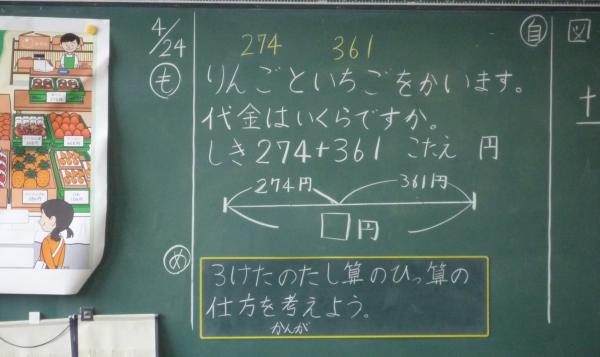 4/24
274 361
も りんごといちごをかいます。
代金はいくらですか。
しき 274+361 こたえ 円
274円 361円
□円
め 3けたのたし算のひっ算の
仕方を考えよう。
かんが
自 図
+